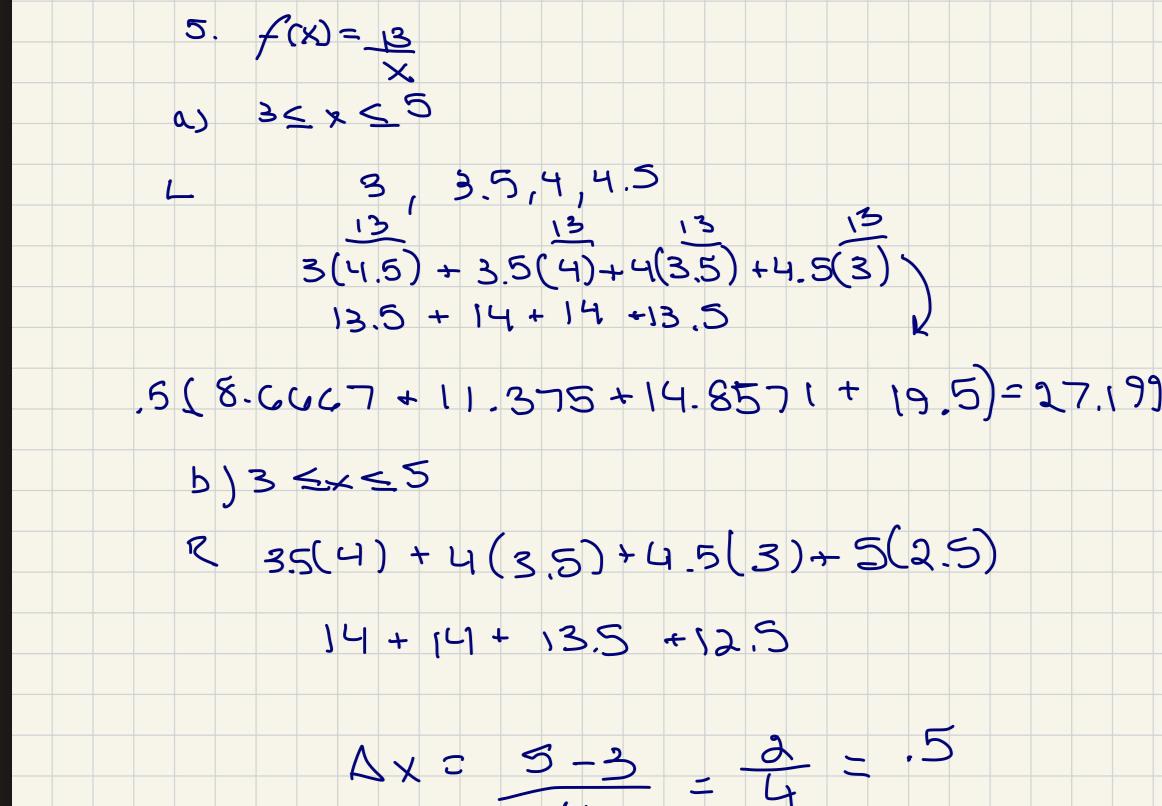 5. f(x) = 13
x
a) 3 ≤ x ≤ 5
L 3, 3.5, 4, 4.5
13 13 13 13
3(4.5) + 3.5(4) + 4(3.5) + 4.5(3)
13.5 + 14 + 14 + 13.5
.5(8.6667 + 11.375 + 14.8571 + 19.5) = 27.199
b) 3 ≤ x ≤ 5
R 3.5(4) + 4(3.5) + 4.5(3) + 5(2.5)
14 + 14 + 13.5 + 12.5
Δx = 5 - 3 = 2 = .5
4